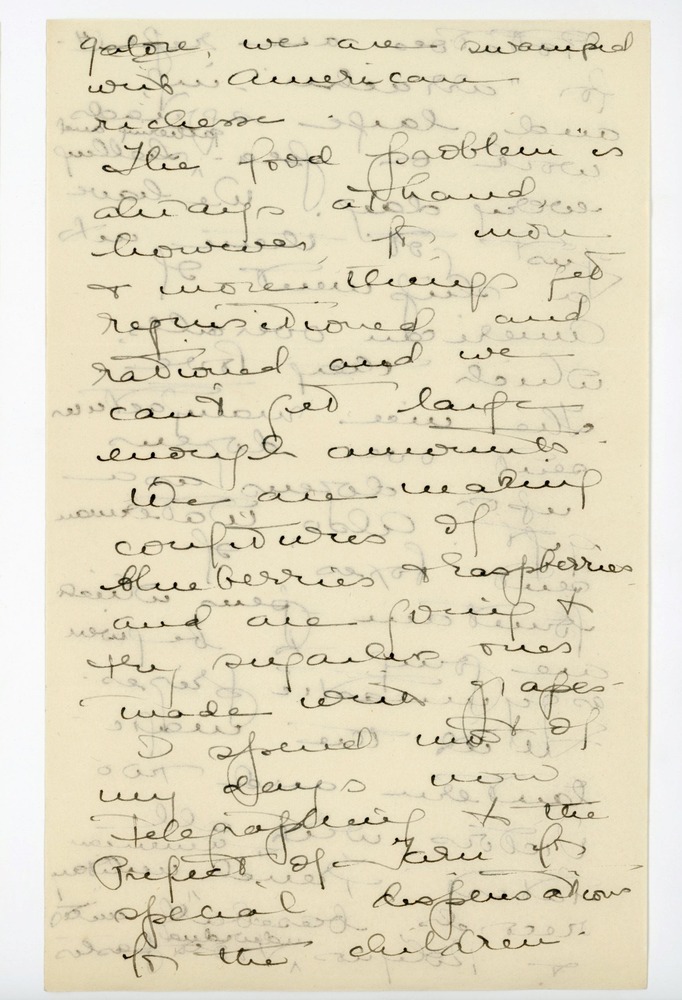 galore, we are swamped
with American
richesse
The food problem is
always at hand,
however, for more
& more things get
requisitioned and
rationed and we
can't get large
enough amounts.
We are making
confitures of
blueberries & raspberries
and are going to
try sugarless ones
made with grapes-
I spend most of
my days now
telegraphing to the
Prefect of Tarn for
special dispensations
for the children.